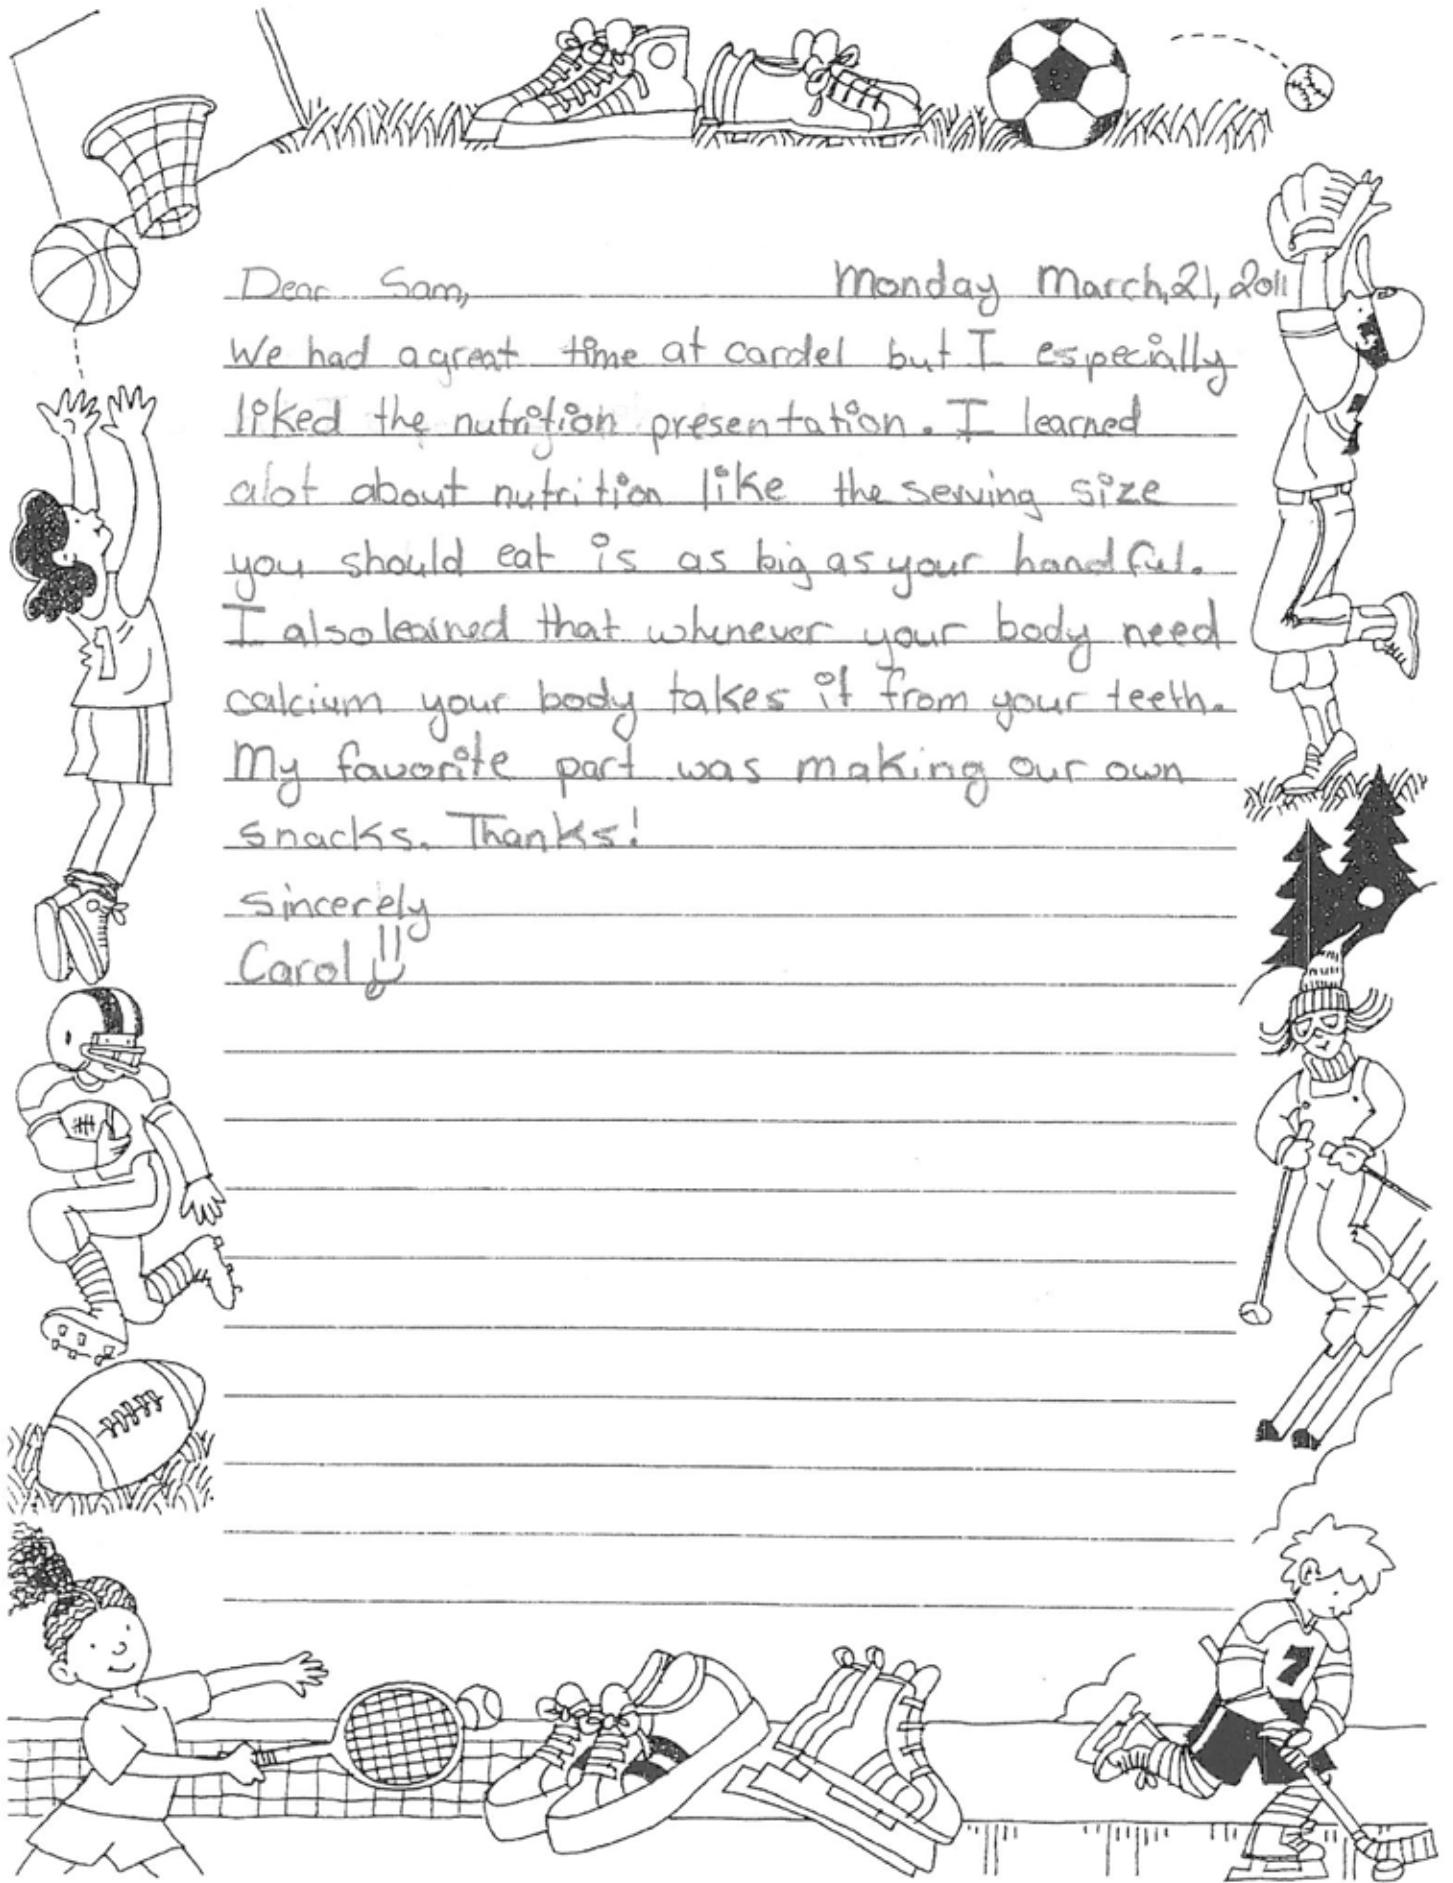 Dear Sam, Monday March,21, 2011
We had a great time at cardel but I especially
liked the nutrition presentation. I learned
alot about nutrition like the serving size
you should eat is as big as your handful.
I also learned that whenever your body need
calcium your body takes it from your teeth.
My favorite part was making our own
snacks. Thanks!
Sincerely
Carol!!
7